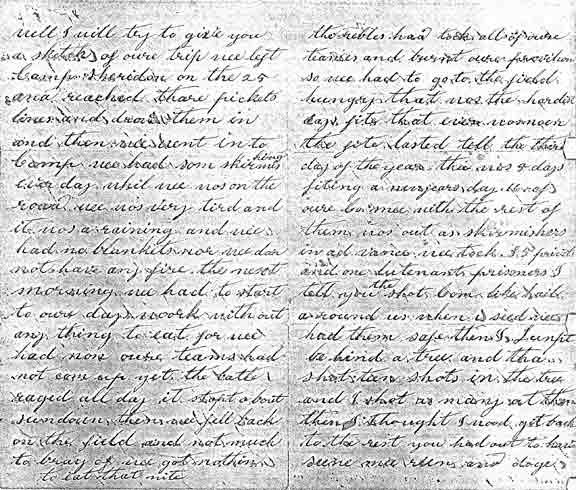 well I will try to give you
a sketch of oure trip wee left
Camp Sheridon on the 25
and reached thare pickets
lines and drove them in
and then wee went in to
Camp wee had som skirmishing
ever day whil wee was on the
road wee was very tird and
it was a raining and wee
had no blankets nor wee dar
not have any fire the next
morning wee had to start
to oure days work without
any thing to eat for wee
had non oure teams had
not com up yet the batel
raged all day it stopt a bout
sundown then wee fell back
on the field and not much
to brag of wee got nothing
to eat that nite
the rebles had took all of oure
teames and burnt oure provition
so wee had to go to the field
hungry that was the hardest
days fite that ever was
the fite lasted tell the third
day of the year thee was 8 days
fiting a nuyears day 16 of
oure bo mee with the rest of
them was out as skirmishers
in ad vance we took 35 privits
and one lutenant prisoners I
tell you the shot Com like hail
around us when wee
had them safe then I jumpt
be hind a tree and tha
shot ten shots in the tree
and I shot as many at them
then I thought I wood get back
to the rest you had out to have
seene mee run and doge